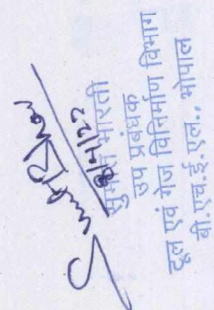 8/4/22
सुमित भारती
उप प्रबंधक
टूल एवं गेज विनिर्माण विभाग
बी.एच.ई.एल., भोपाल